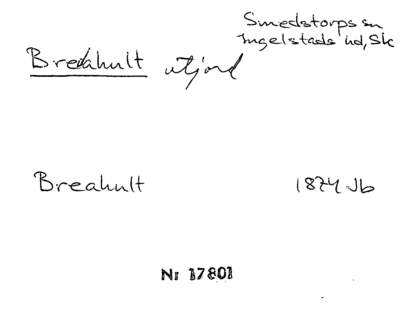 Smedstorps sn
Ingelstads hd, Sk
Breahult utjord
Breahult 1874 Jb
Nr 17801